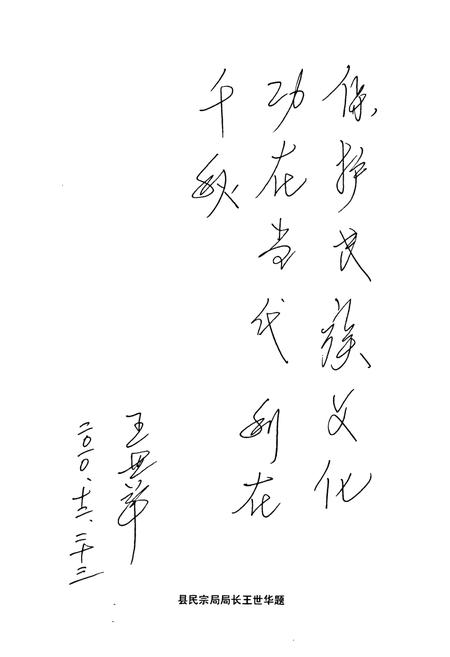 保护民族文化
功在当代利在
千秋
王世华
二〇一〇、十二、二十三
县民宗局局长王世华题